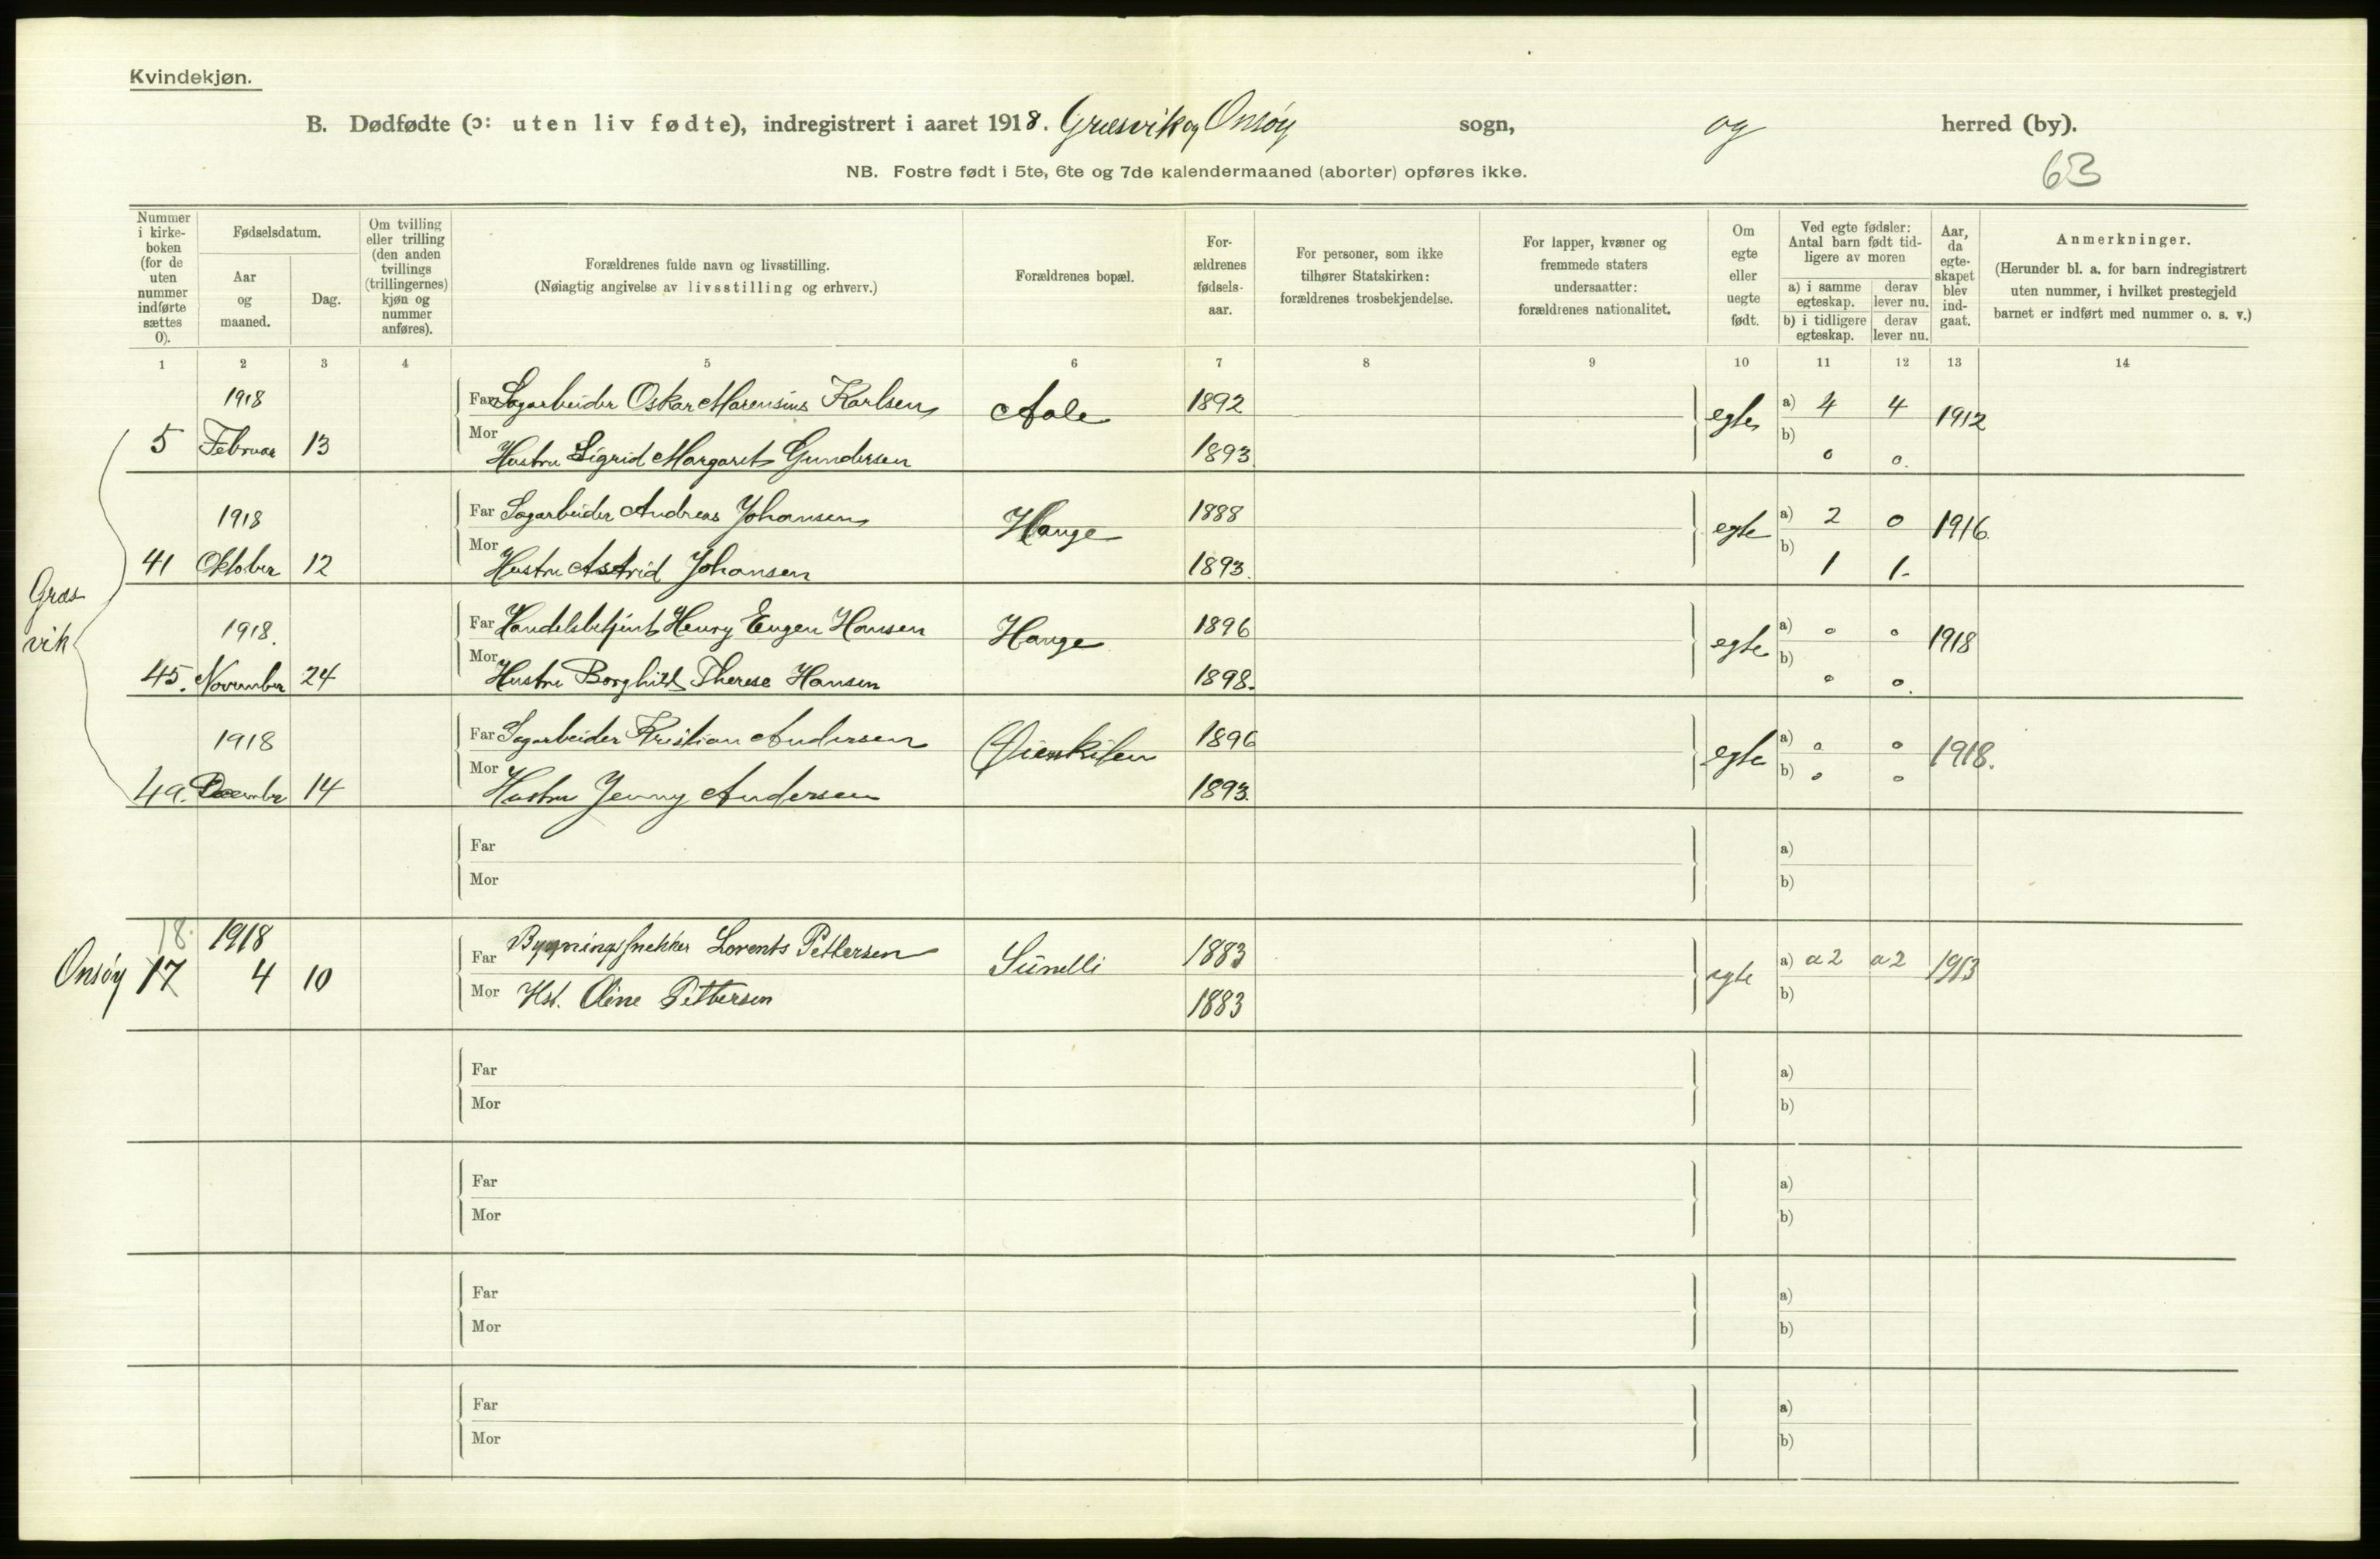 Kvindekjøn.
B. Dødfødte (ɔ: uten liv fødte), indregistrert i aaret 1918. Græsvik og Onsøy sogn, og herred (by).
63
NB. Fostre født i 5te, 6te og 7de kalendermaaned (aborter) opføres ikke.
Nummer i kirke-boken (for de uten nummer indførte sættes 0).
Fødselsdatum.
Aar og maaned.
Dag.
Om tvilling eller trilling (den anden tvillings (trillingernes) kjøn og nummer anføres).
Forældrenes fulde navn og livsstilling.
(Nøiagtig angivelse av livsstilling og erhverv.)
Forældrenes bopæl.
For-ældrenes fødsels-aar.
For personer, som ikke tilhører Statskirken: forældrenes trosbekjendelse.
For lapper, kvæner og fremmede staters undersaatter: forældrenes nationalitet.
Om egte eller uegte født.
Ved egte fødsler: Antal barn født tid-ligere av moren
a) i samme egteskap.
derav lever nu.
b) i tidligere egteskap.
derav lever nu.
Aar, da egte-skapet blev ind-gaat.
Anmerkninger.
(Herunder bl. a. for barn indregistrert uten nummer, i hvilket prestegjeld barnet er indført med nummer o. s. v.)
1 2 3 4 5 6 7 8 9 10 11 12 13 14
Græs
vik
1918
Far Sagarbeider Oskar Marensius Karlsen Aale 1892 egte a) 4 4 1912
5 Februar 13
Mor Hustru Sigrid Margaret Gundersen 1893 b) 0 0.
1918
Far Sagarbeider Andreas Johansen Hauge 1888 egte a) 2 0 1916.
41 Oktober 12
Mor Hustru Astrid Johansen 1893. b) 1 1.
1918.
Far Handelsbetjent Henry Eugen Hansen Hauge 1896 egte a) 0 0 1918
45. November 24
Mor Hustru Borghild Therese Hansen 1898. b) 0 0.
1918
Far Sagarbeider Kristian Andersen 1896 egte a) 0 0 1918.
49. December 14
Mor Hustru Jenny Andersen 1893. b) 0 0
Far a)
Mor b)
18. 1918
Far Bygningssnekker Lorents Pettersen 1883 egte a) a2 a2 1913
Onsøy 17 4 10
Mor Hst. Oline Pettersen 1883 b)
Far a)
Mor b)
Far a)
Mor b)
Far a)
Mor b)
Far a)
Mor b)